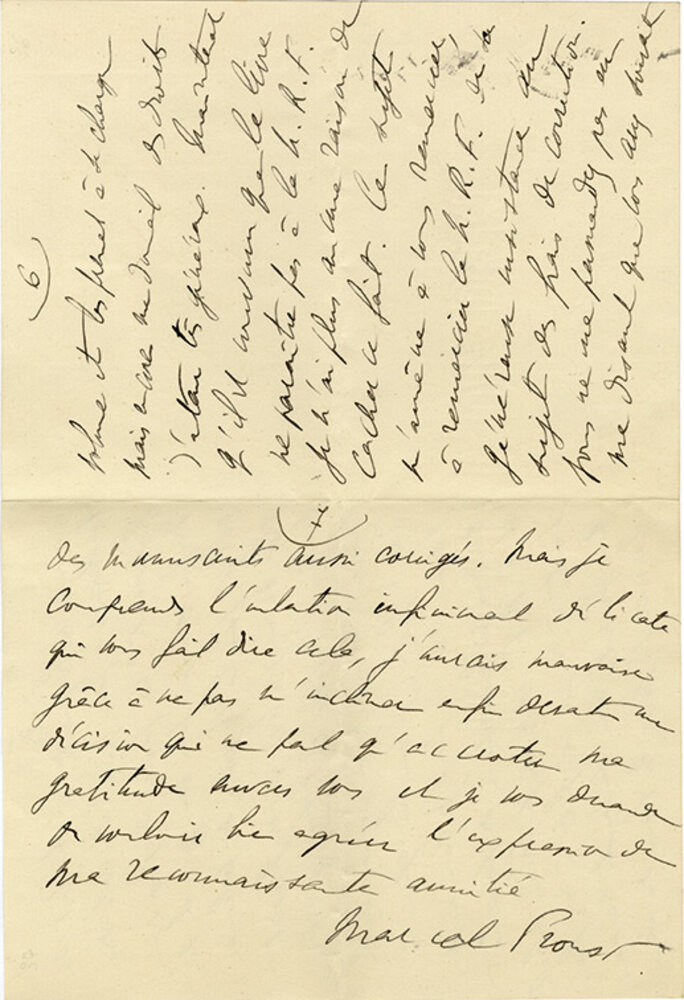 6
volume et les prenait à sa charge
mais encore me donnait des droits
d'auteur très généreux. Maintenant
qu'il est convenu que le livre
ne paraîtra pas à la N. R. F.
je n'ai plus aucune raison de
cacher ce fait. Ce sujet
m'amène à vous remercier,
à remercier la N. R. F. de sa
généreuse insistance au
sujet des frais de correction.
vous ne me persuadez pas en
me disant que tous ang
des manuscrits aussi corrigés. Mais je
comprends l'intention infiniment délicate
qui vous fait dire cela, j'aurais mauvaise
grâce à ne pas m'incliner enfin devant une
décision qui ne fait qu'accroître ma
gratitude envers vous et je vous demande
de vouloir bien agréer l'expression de
ma reconnaissante amitié
Marcel Proust